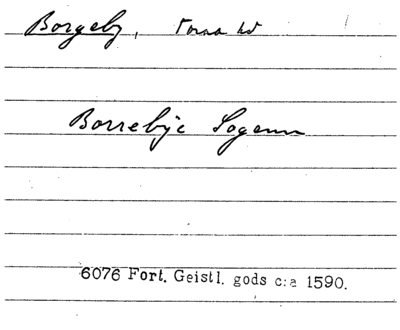 Borgeby, Torna hd
Borrebyc Sogenn
6076 Fort. Geistl. gods c:a 1590.